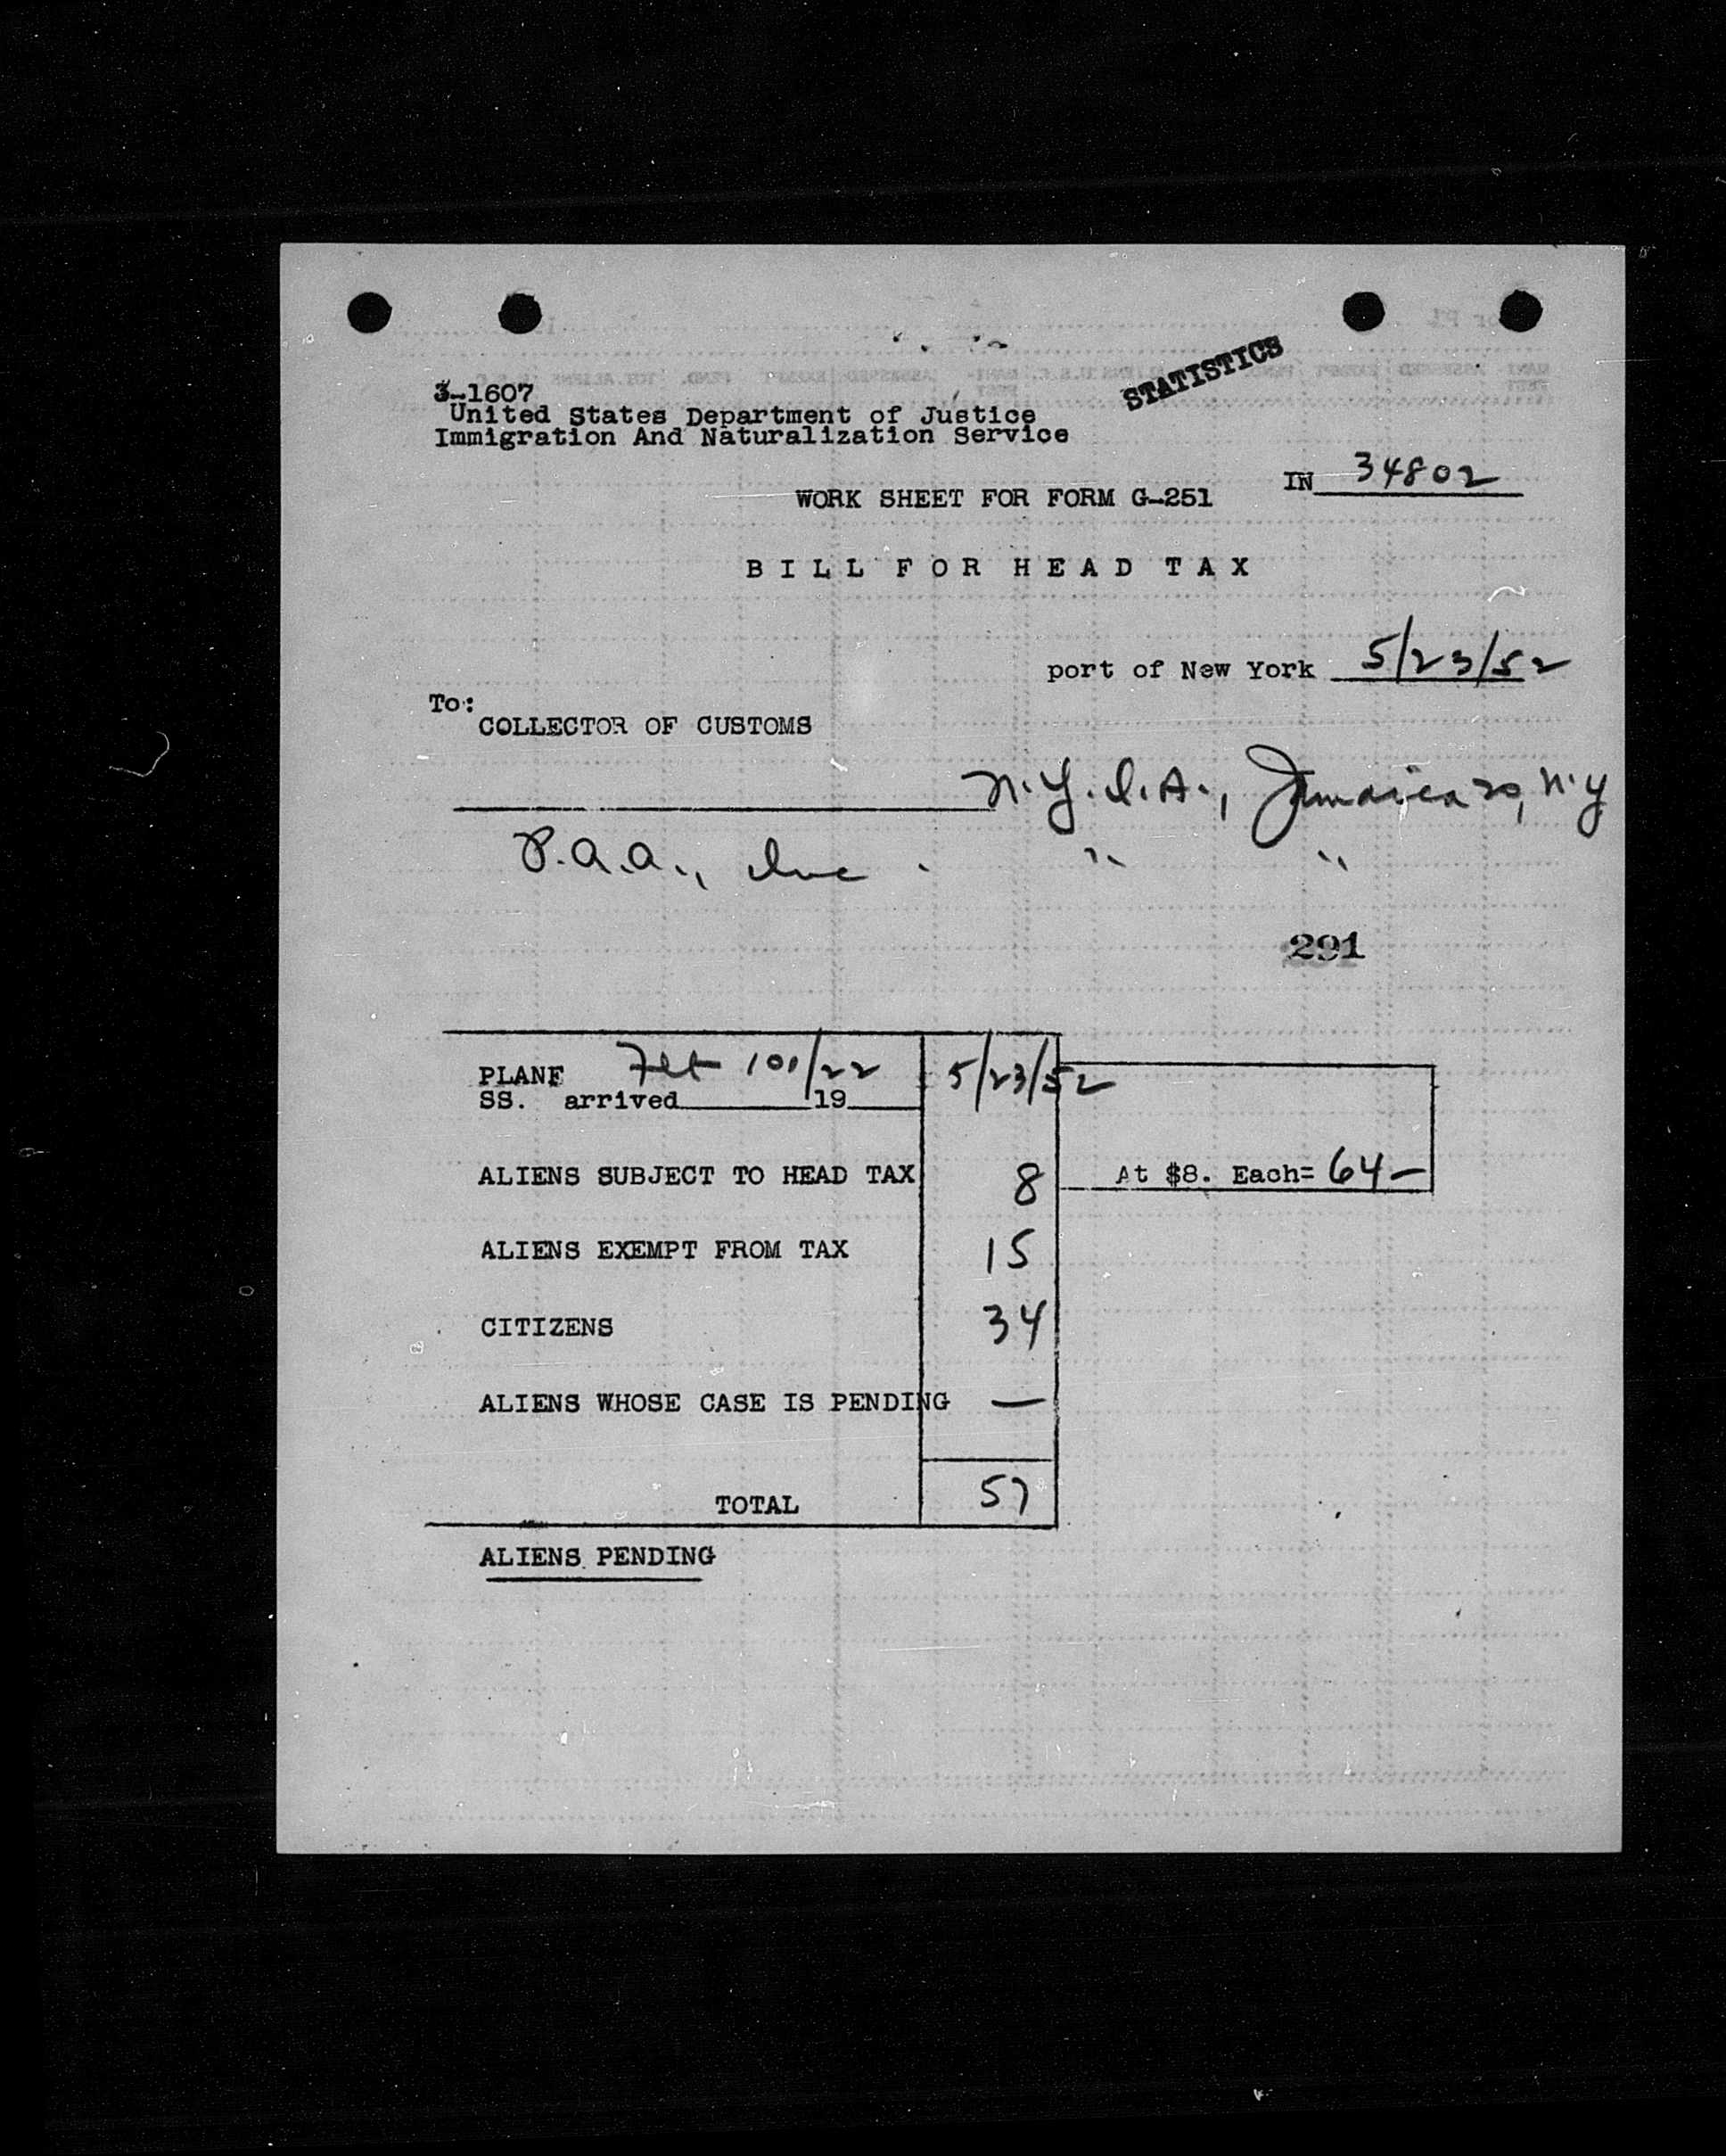 STATISTICS
3-1607
United States Department of Justice
Immigration And Naturalization Service
IN 34802
WORK SHEET FOR FORM G-251
BILL FOR HEAD TAX
port of New York 5/23/52
To:
COLLECTOR OF CUSTOMS
N.Y.I.A., Jamaica 30, N.Y
P.A.A., Inc. " "
291
PLANE Flt 101/22 5/23/52
SS. arrived 19
ALIENS SUBJECT TO HEAD TAX 8 At $8. Each= 64—
ALIENS EXEMPT FROM TAX 15
CITIZENS 34
ALIENS WHOSE CASE IS PENDING —
TOTAL 57
ALIENS PENDING